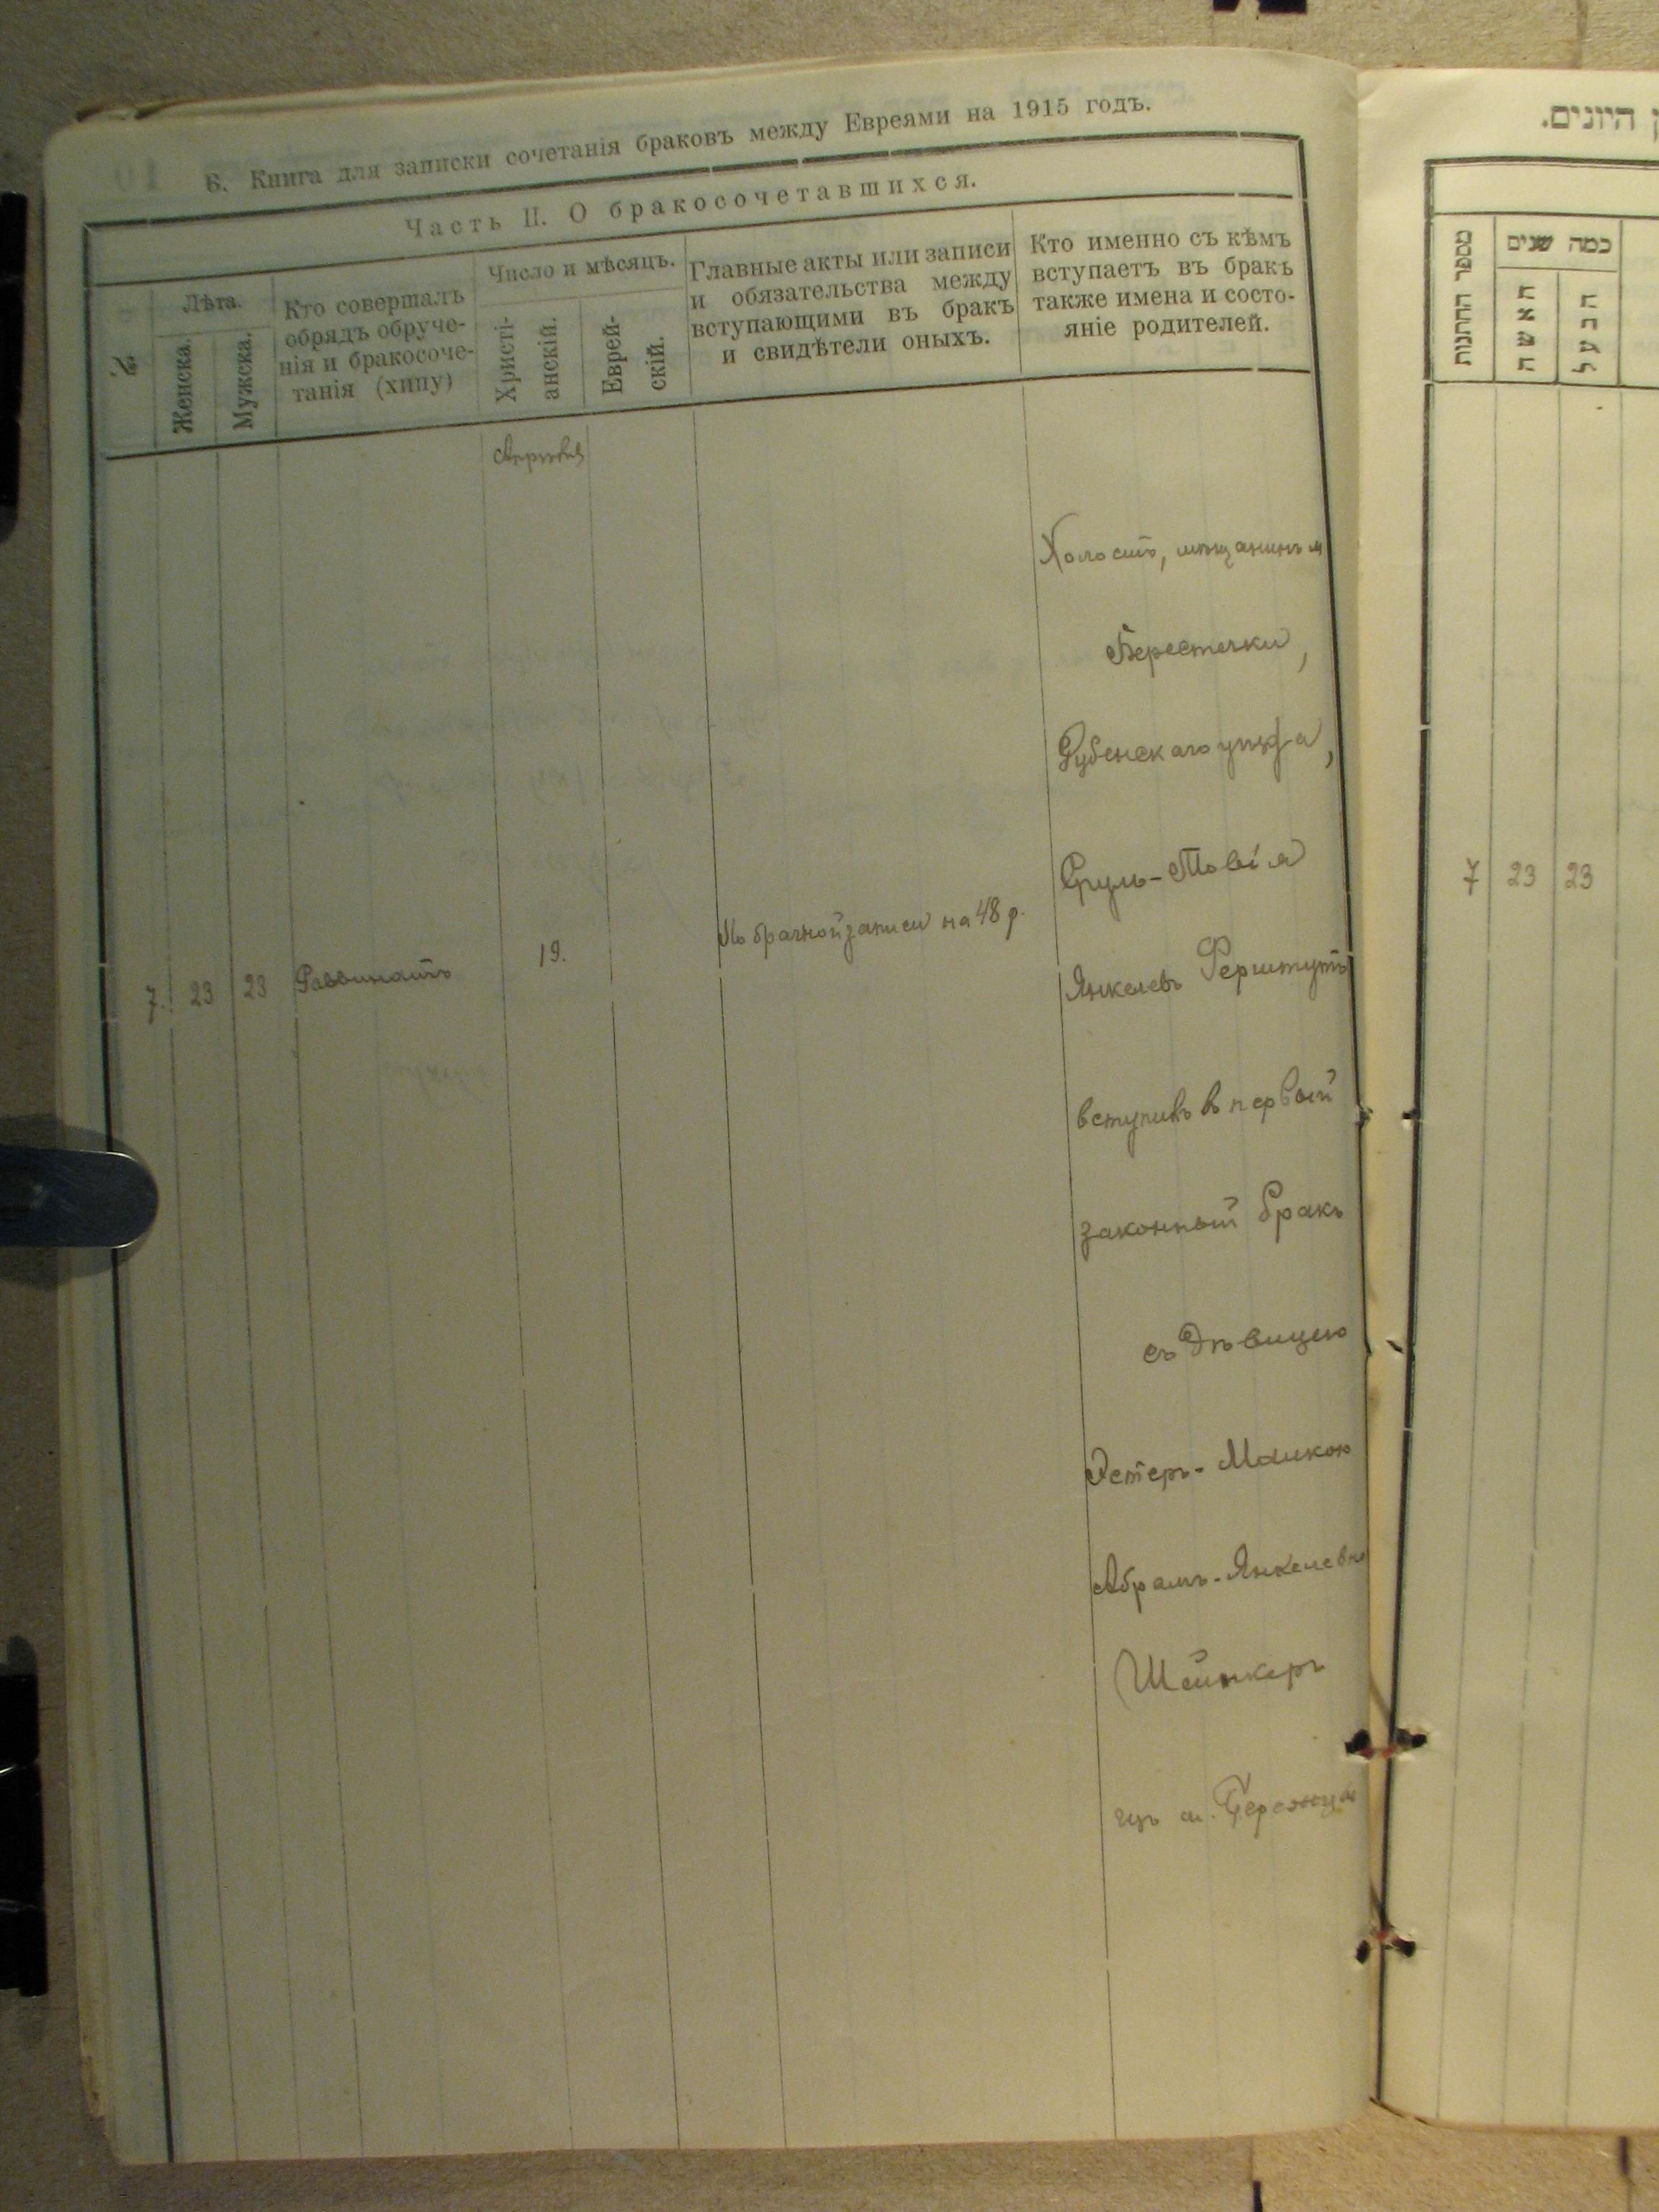 Б. Книга для записки сочетанія браковъ между Евреями на 1915 годъ.
Часть II. О бракосочетавшихся.
№
Лѣта.
Женска.
Мужска.
Кто совершалъ
обрядъ обруче-
нія и бракосоче-
танія (хипу)
Число и мѣсяцъ.
Христі-
анскій.
Еврей-
скій.
Главные акты или записи
и обязательства между
вступающими въ бракъ
и свидѣтели оныхъ.
Кто именно съ кѣмъ
вступаетъ въ бракъ
также имена и состо-
яніе родителей.
Холостъ, мѣщанинъ м
Берестечки,
Дубенскаго уѣзда,
Сруль-Товія
7. 23 23 Раввинатъ 19. По брачной записи на 48 р. Янкелевъ Ферштутъ
вступилъ в первый
законный бракъ
съ дѣвицею
Эстеръ-Малкою
Абрамъ-Янкелевна
Шейнкеръ
изъ м.
היונים.
מספר החתנות
כמה שנים
האשה
הבעל
7 23 23